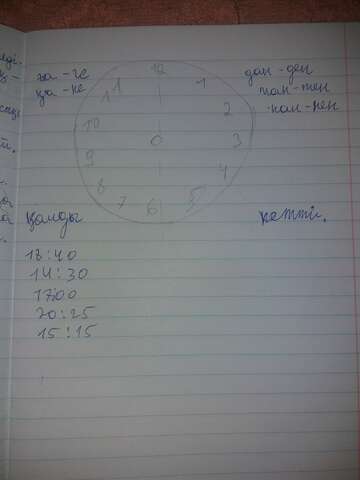 ға - ге
қа - ке
дан - ден
тан - тен
нан - нен
12
1
2
3
4
5
6
7
8
9
10
11
0
қалды
кетті.
18:40
14:30
17:00
20:25
15:15